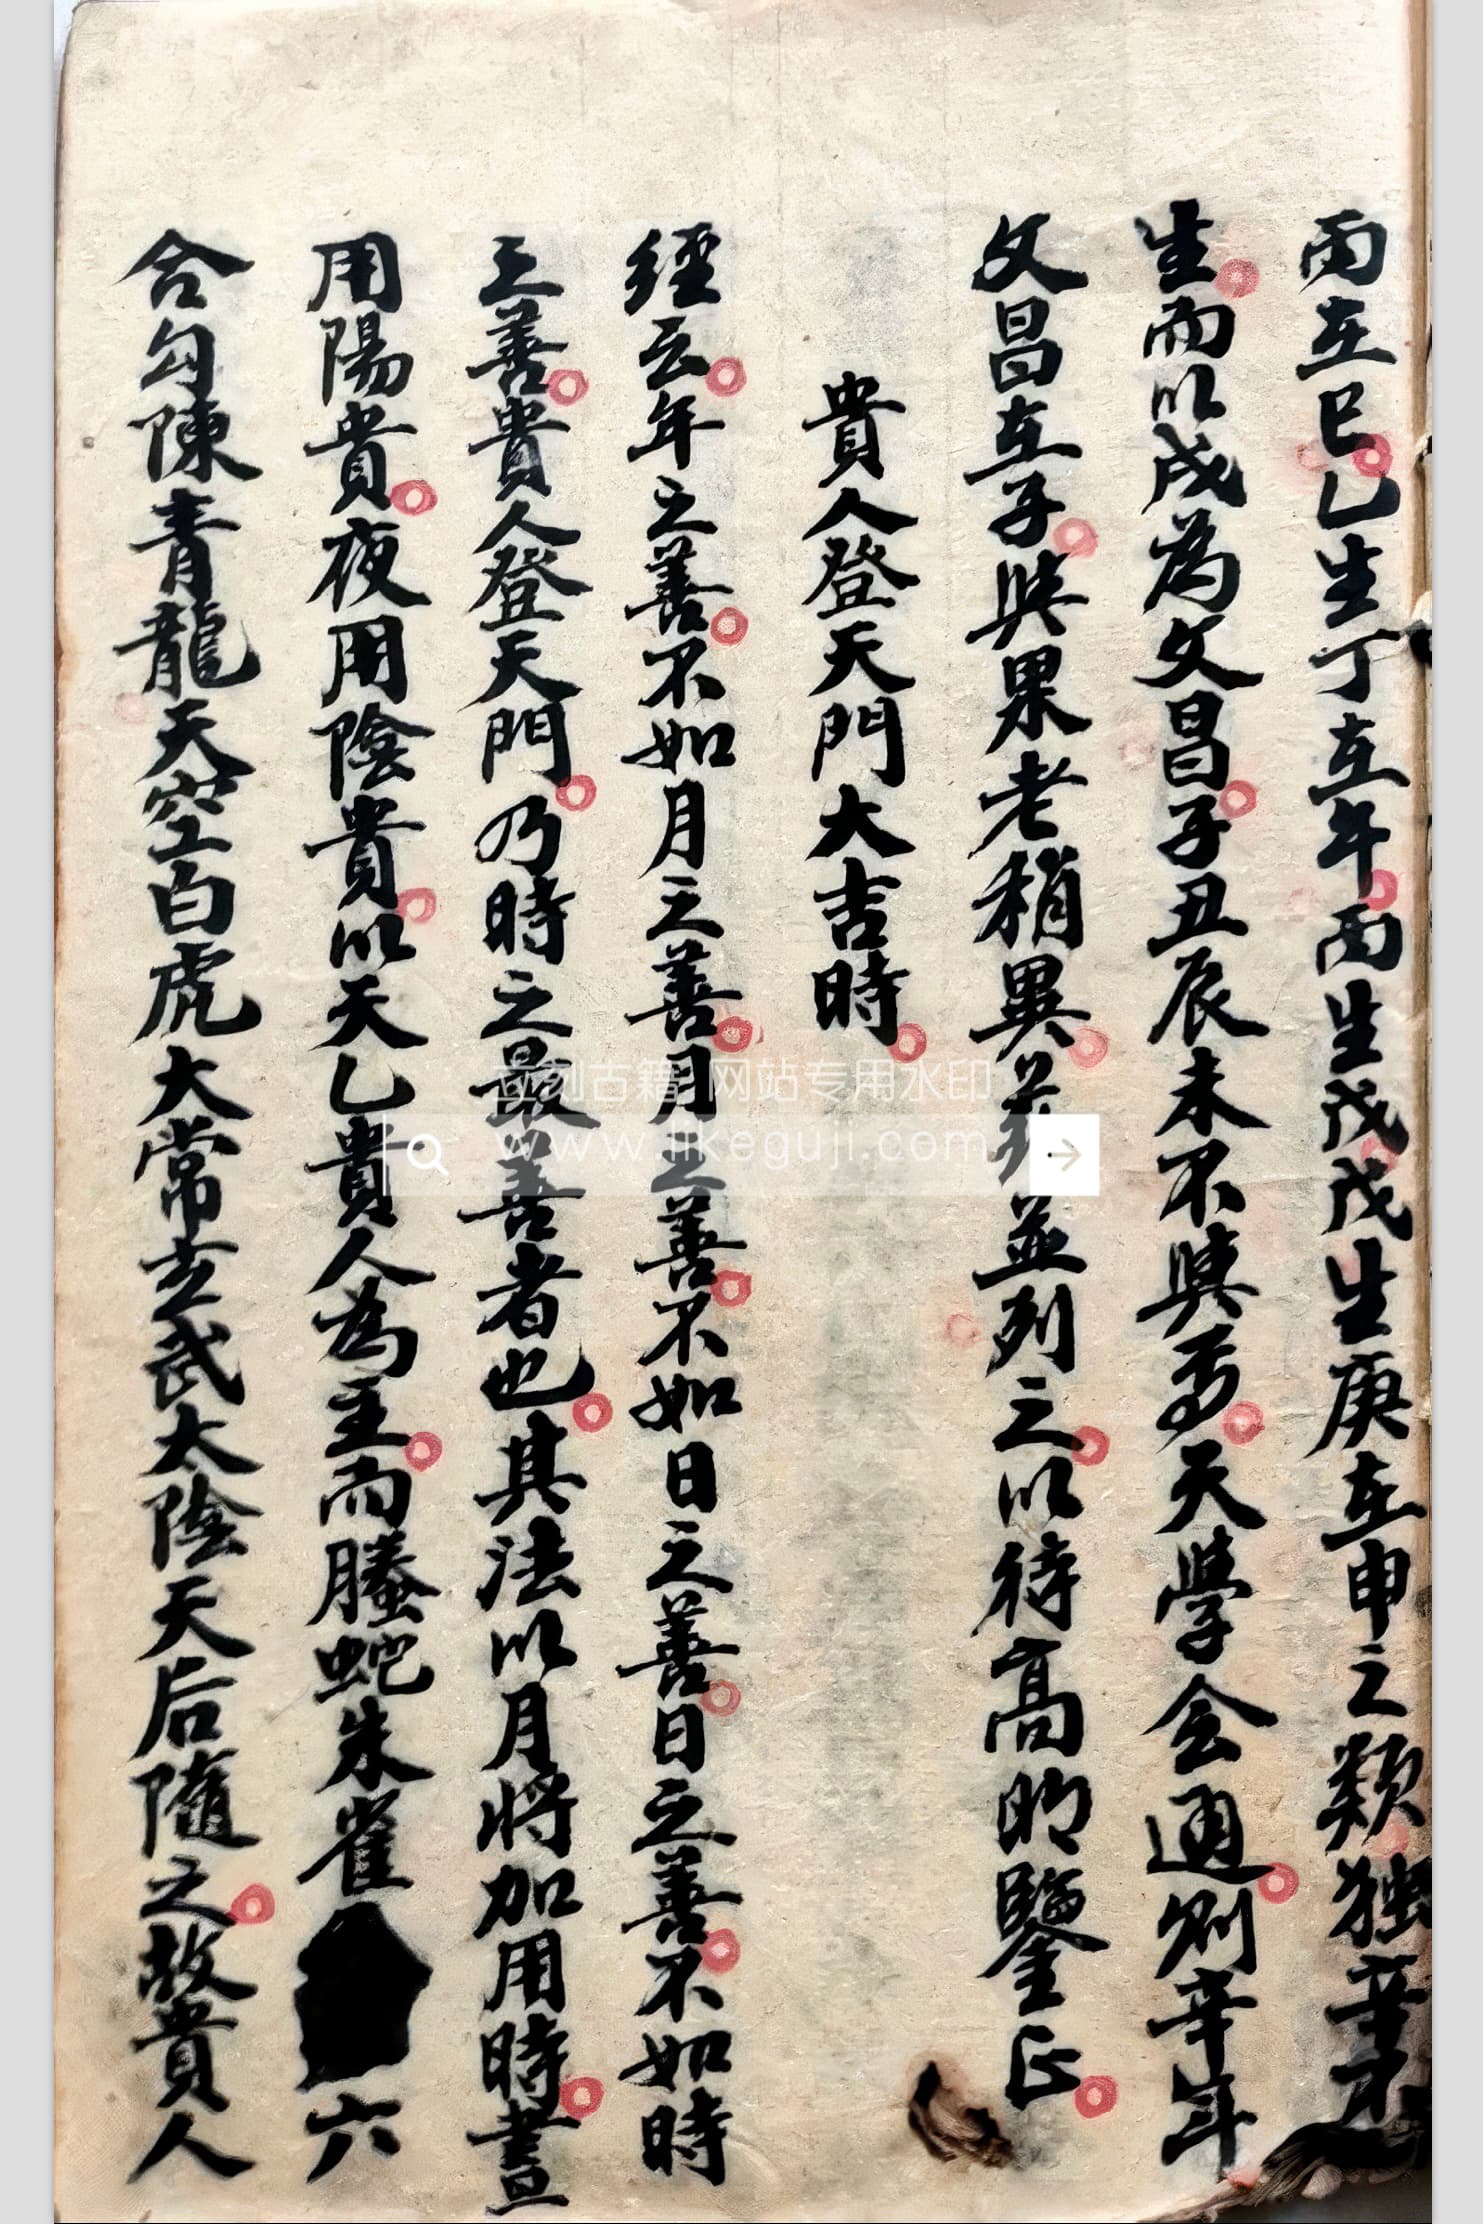 而在巳乙生丁在午丙生戊戊生庚在申之類獨辛
生而以戌為文昌子丑辰未不與焉天學会通則辛年
文昌在子與果老稍異並列之以待高明鑒正
貴人登天門大吉時
經云年之善不如月之善月之善不如日之善日之善不如時
之善貴人登天門乃時之最善者也其法以月將加用時晝
用陽貴夜用陰貴以天乙貴人為主而螣蛇朱雀六
合勾陳青龍天空白虎大常玄武太陰天后隨之故貴人
立刻古籍 网站专用水印
www.likeguji.com